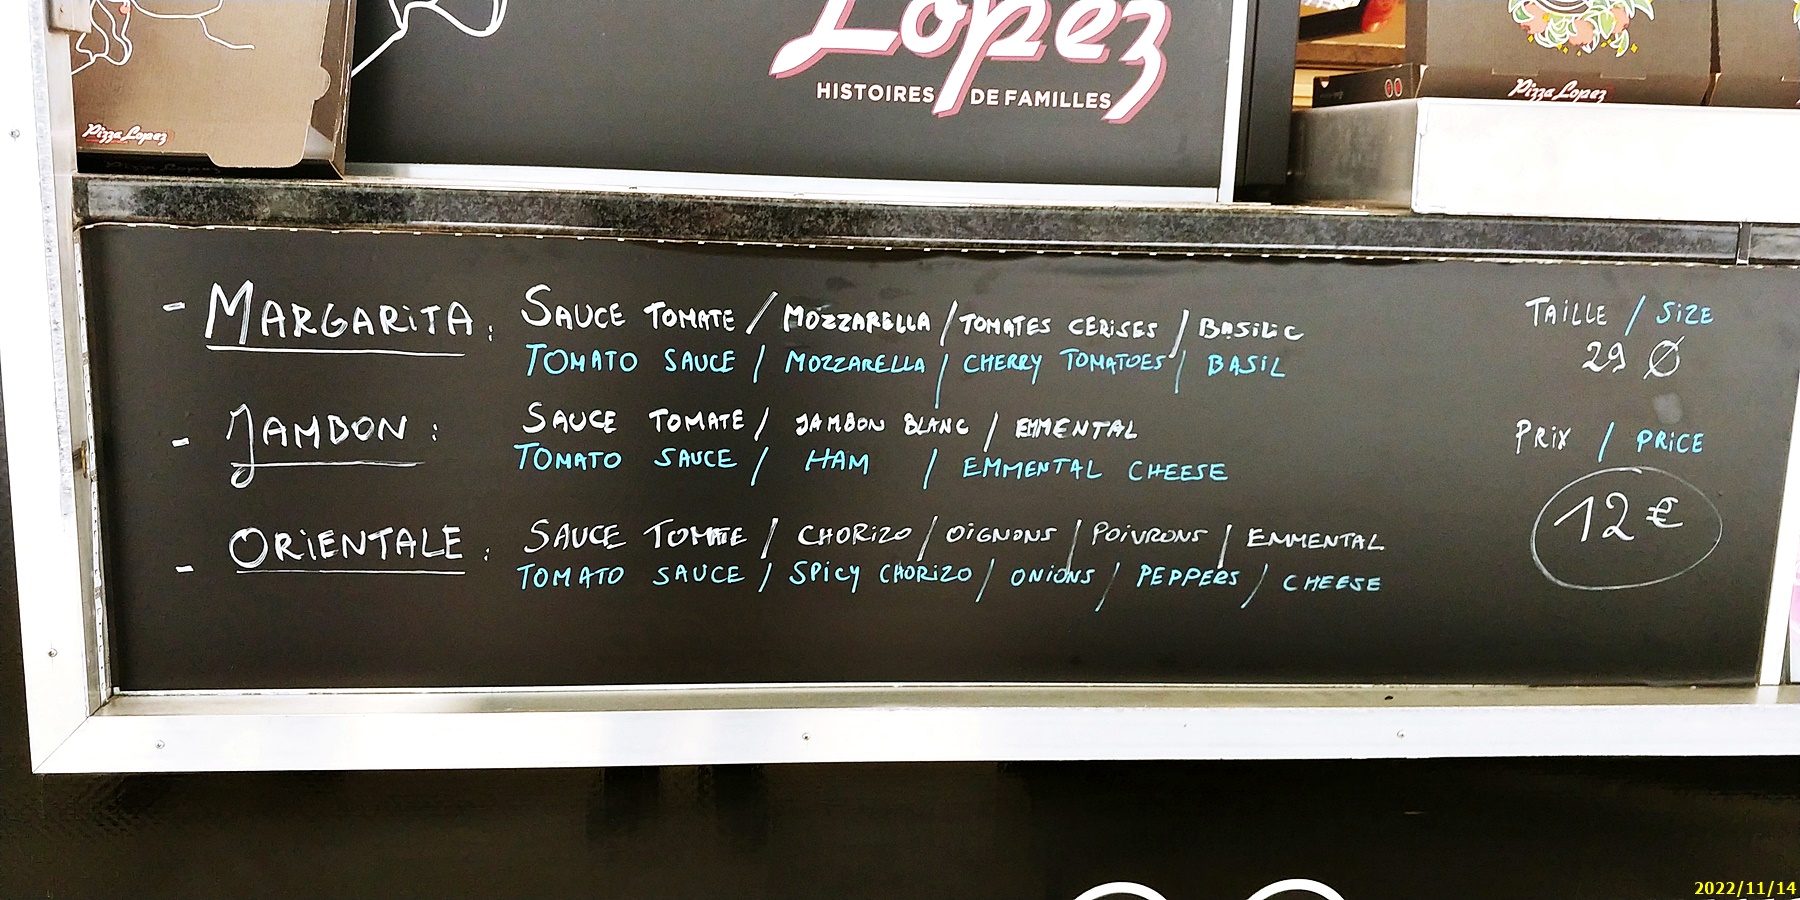 Lopez
HISTOIRES DE FAMILLES
Pizza Lopez
Pizza Lopez
Pizza Lopez
- MARGARITA : SAUCE TOMATE / MOZZARELLA / TOMATES CERISES / BASILIC
TOMATO SAUCE / MOZZARELLA / CHERRY TOMATOES / BASIL
- JAMBON : SAUCE TOMATE / JAMBON BLANC / EMMENTAL
TOMATO SAUCE / HAM / EMMENTAL CHEESE
- ORIENTALE : SAUCE TOMATE / CHORIZO / OIGNONS / POIVRONS / EMMENTAL
TOMATO SAUCE / SPICY CHORIZO / ONIONS / PEPPERS / CHEESE
TAILLE / SIZE
29 Ø
PRIX / PRICE
12 €
2022/11/14